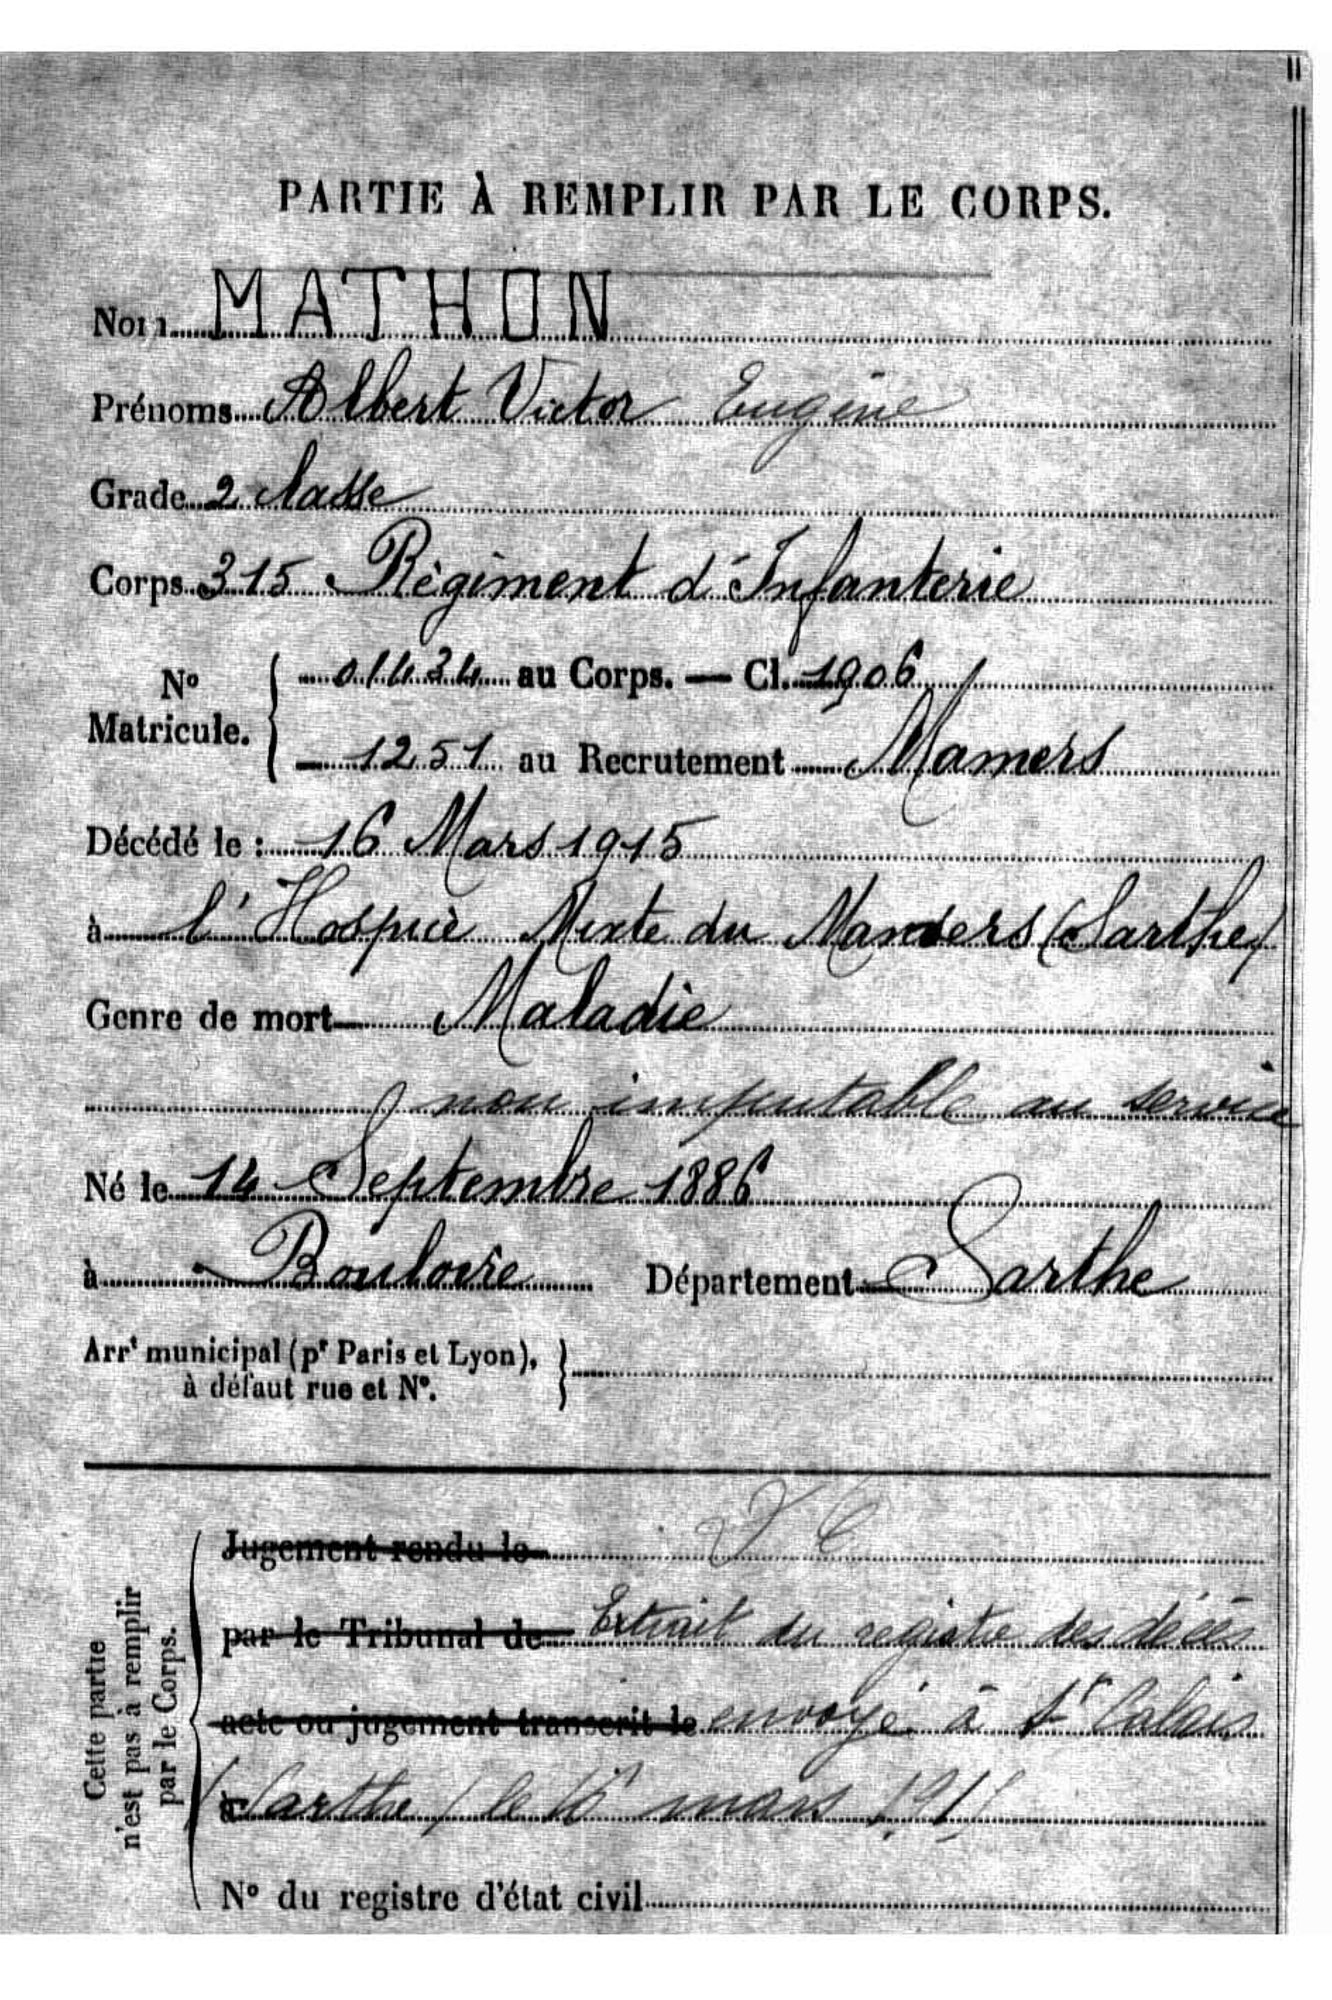 PARTIE À REMPLIR PAR LE CORPS.
Nom MATHON
Prénoms Albert Victor Eugène
Grade 2 classe
Corps 315 Régiment d'Infanterie
N° Matricule. { 01434 au Corps. — Cl. 1906
1251 au Recrutement Mamers
Décédé le : 16 Mars 1915
à l'Hospice Mixte du Mamers (Sarthe)
Genre de mort Maladie
non imputable au service
Né le 14 Septembre 1886
à Bouloire Département Sarthe
Arrt municipal (pr Paris et Lyon), à défaut rue et N°. }
Cette partie n'est pas à remplir par le Corps.
Jugement rendu le
par le Tribunal de Extrait du registre des décès
acte ou jugement transcrit le envoyé à St Calais
à (Sarthe) le 16 mars 191
N° du registre d'état civil